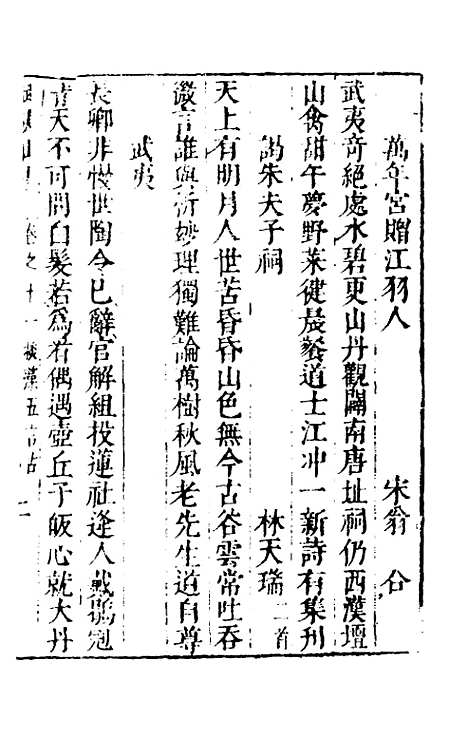 萬年宮贈江羽人 宋翁合
武夷竒絕處水碧更山丹觀闢南唐址祠仍西漢壇
山禽甜午夢野菜健晨餐道士江冲一新詩有集刋
謁朱夫子祠 林天瑞二首
天上有明月人世苦昏昏山色無今古谷雲常吐吞
微言誰與析妙理獨難論萬樹秋風老先生道自尊
武夷
長卿非慢世陶令已辭官解組投蓮社逢人戴鶡冠
青天不可問白髮若為看偶遇壺丘子皈心就大丹
武夷山 卷之十一 五言 二